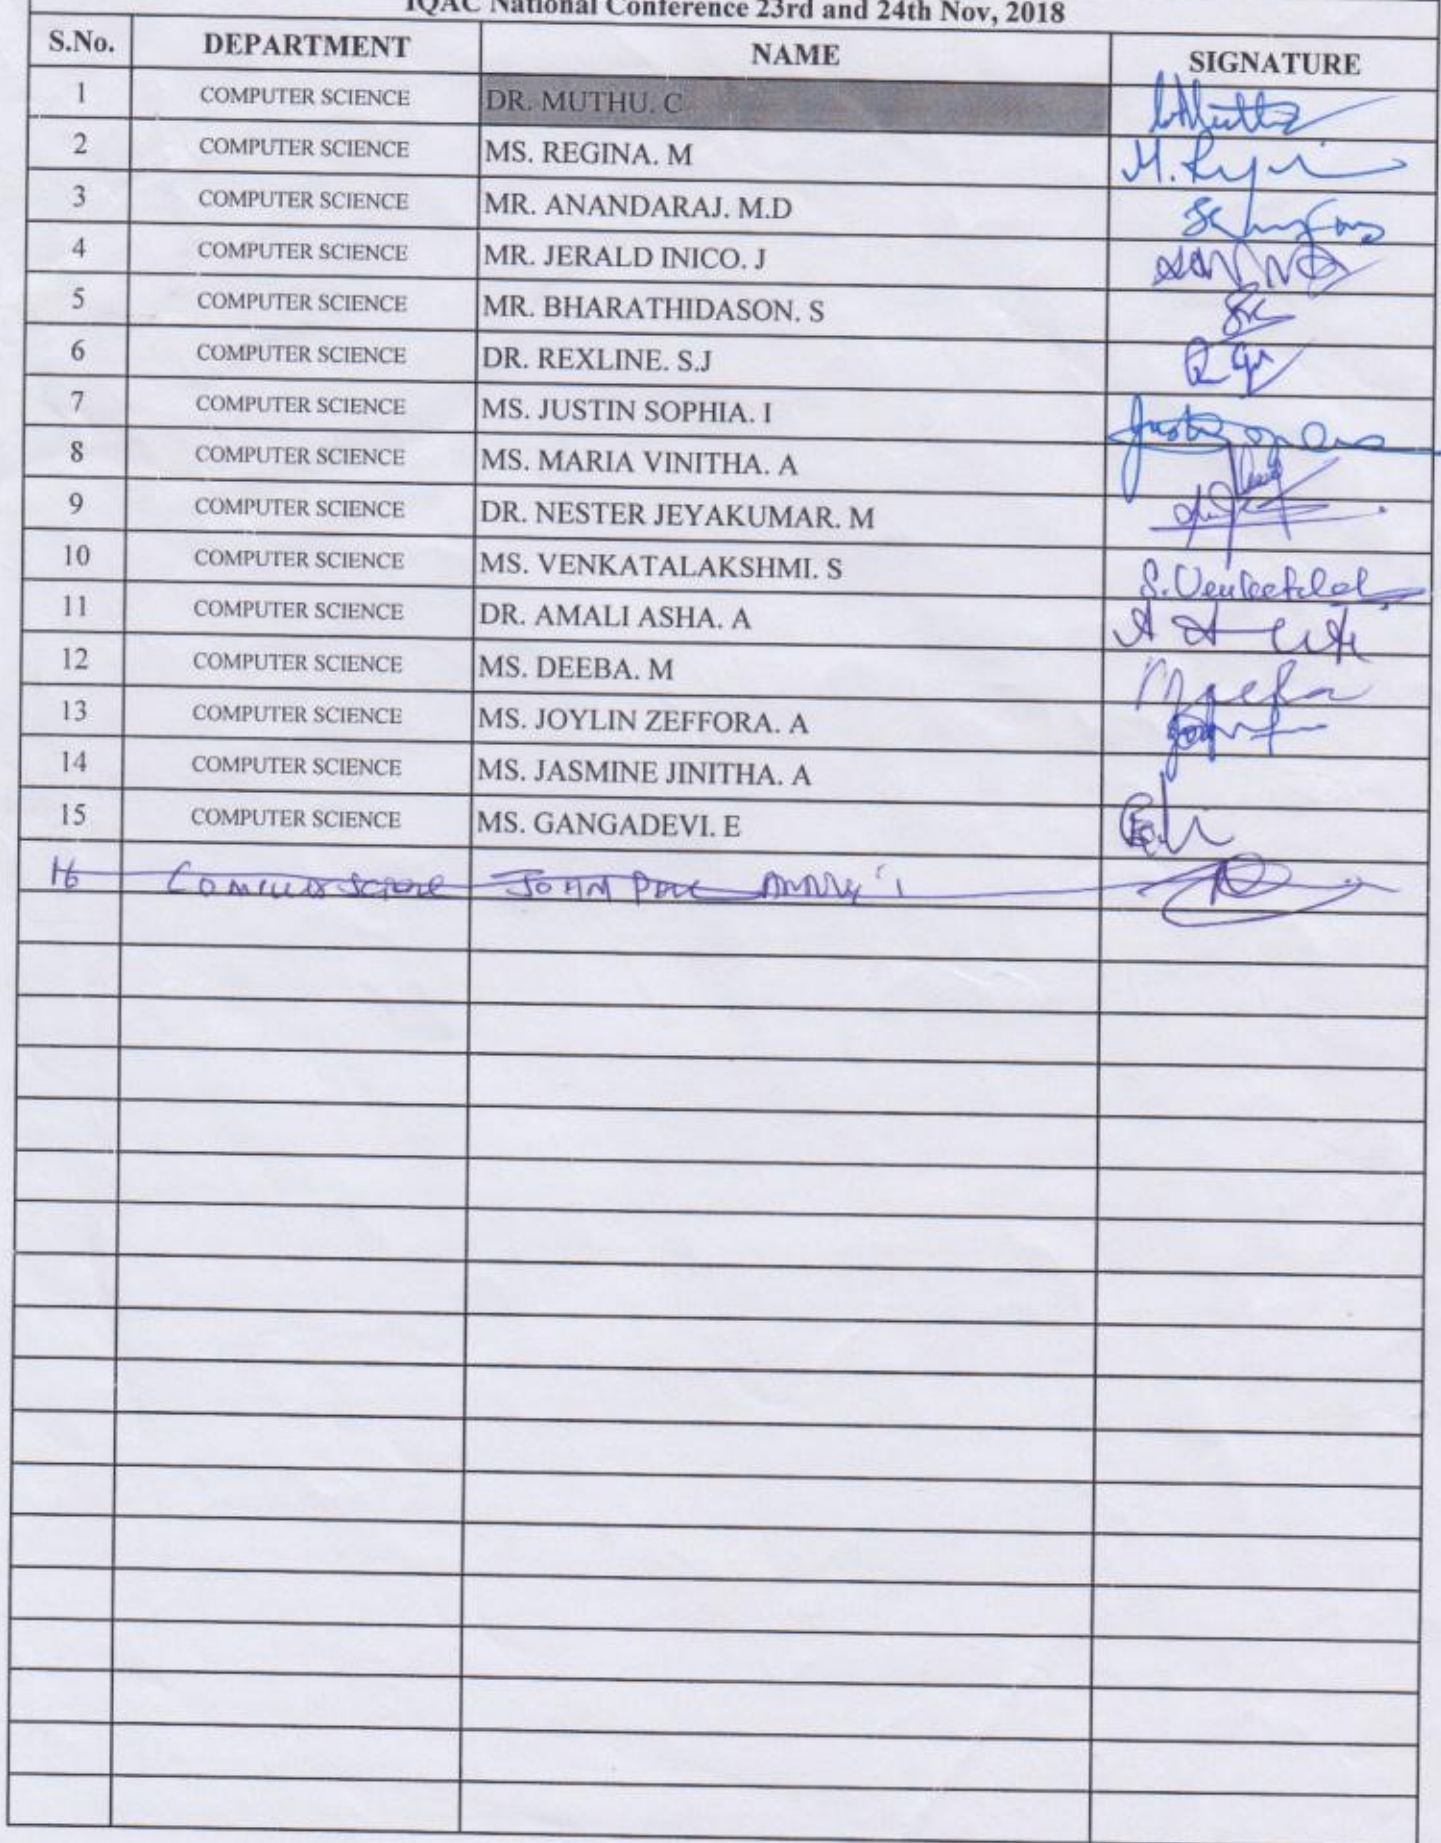 IQAC National Conference 23rd and 24th Nov, 2018
S.No. DEPARTMENT NAME SIGNATURE
1 COMPUTER SCIENCE DR. MUTHU. C
2 COMPUTER SCIENCE MS. REGINA. M
3 COMPUTER SCIENCE MR. ANANDARAJ. M.D
4 COMPUTER SCIENCE MR. JERALD INICO. J
5 COMPUTER SCIENCE MR. BHARATHIDASON. S
6 COMPUTER SCIENCE DR. REXLINE. S.J
7 COMPUTER SCIENCE MS. JUSTIN SOPHIA. I
8 COMPUTER SCIENCE MS. MARIA VINITHA. A
9 COMPUTER SCIENCE DR. NESTER JEYAKUMAR. M
10 COMPUTER SCIENCE MS. VENKATALAKSHMI. S
11 COMPUTER SCIENCE DR. AMALI ASHA. A
12 COMPUTER SCIENCE MS. DEEBA. M
13 COMPUTER SCIENCE MS. JOYLIN ZEFFORA. A
14 COMPUTER SCIENCE MS. JASMINE JINITHA. A
15 COMPUTER SCIENCE MS. GANGADEVI. E
16 JOHN